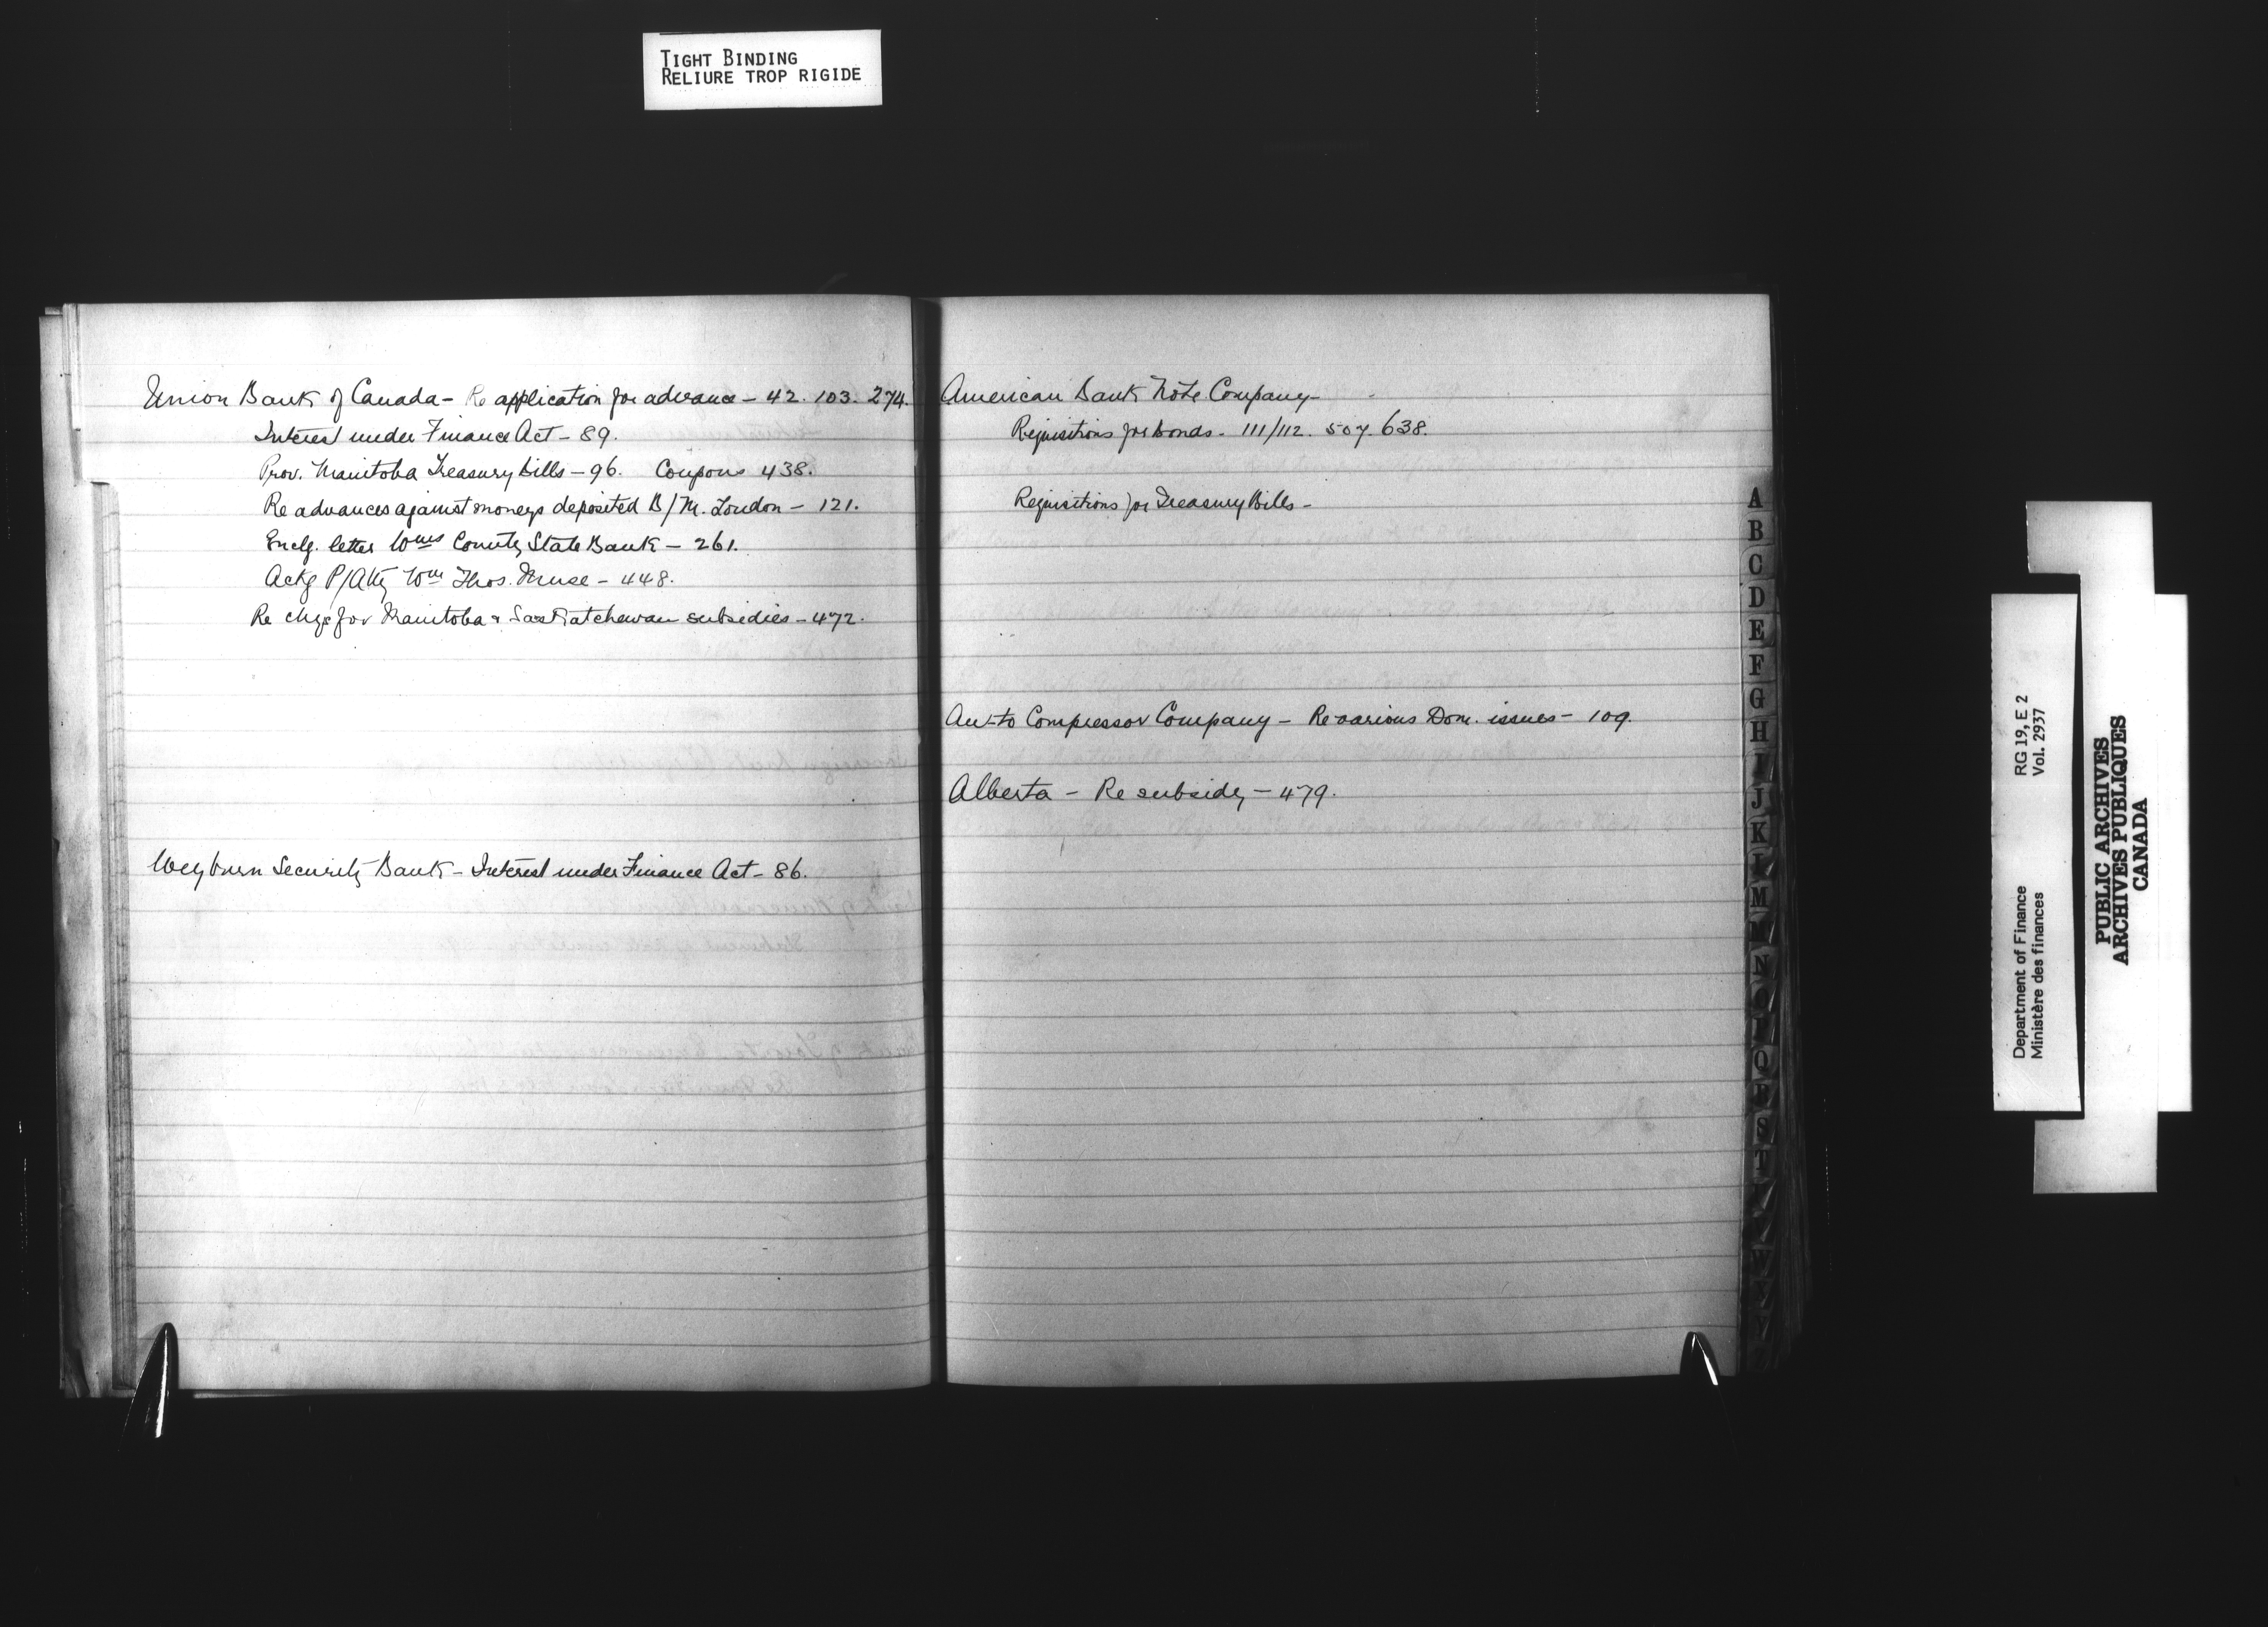 TIGHT BINDING
RELIURE TROP RIGIDE
Union Bank of Canada - Re application for advance - 42. 103. 274.
Interest under Finance Act - 89.
Prov. Manitoba Treasury bills - 96. Coupons 438.
Re advances against moneys deposited B/M. London - 121.
Enclg. letter Wms County State Bank - 261.
Actg P/Atty Wm Thos. - 448.
Re chgs for Manitoba & Saskatchewan subsidies - 472.
Weyburn Security Bank - Interest under Finance Act - 86.
American Bank Note Company -
Requisitions for bonds - 111/112. 507. 638.
Requisitions for Treasury Bills -
Auto Compressor Company - Re various Dom. issues - 109.
Alberta - Re subsidy - 479.
A
B
C
D
E
F
G
H
I
J
K
L
M
N
O
P
Q
R
S
T
W
Department of Finance RG 19, E 2
Ministère des finances Vol. 2937
PUBLIC ARCHIVES
ARCHIVES PUBLIQUES
CANADA